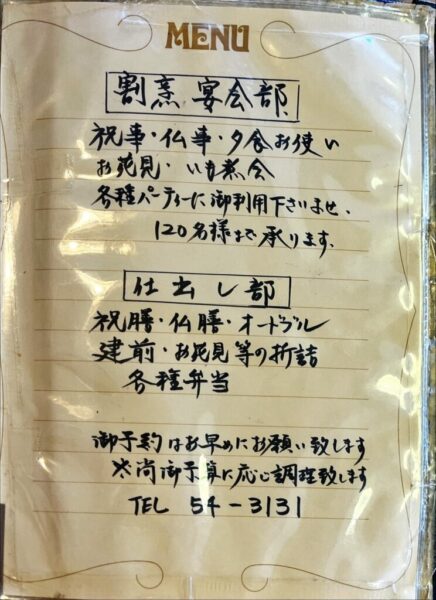 MENU
割烹 宴会部
祝事・仏事・夕食お使い
お花見・いも煮会
各種パーティーに御利用下さいませ、
120名様まで承ります。
仕出し部
祝膳・仏膳・オードブル
建前・お花見等の折詰
各種弁当
御予約はお早めにお願い致します
※尚御予算に応じ調理致します
TEL 54-3131